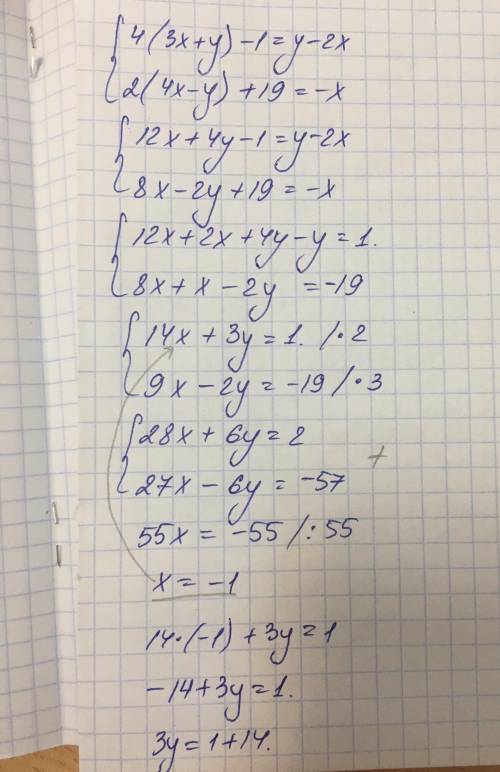 4(3x+y)-1=y-2x
2(4x-y)+19=-x
12x+4y-1=y-2x
8x-2y+19=-x
12x+2x+4y-y=1.
8x+x-2y =-19
14x+3y=1. /·2
9x-2y=-19/·3
28x+6y=2
+
27x-6y=-57
55x=-55/:55
x=-1
14·(-1)+3y=1
-14+3y=1.
3y=1+14.